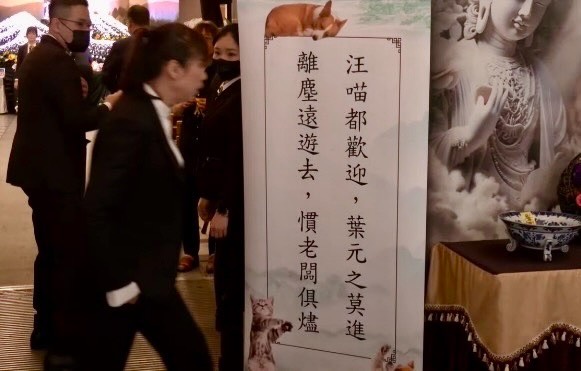 汪喵都歡迎，葉元之莫進
離塵遠遊去，慣老闆俱燼